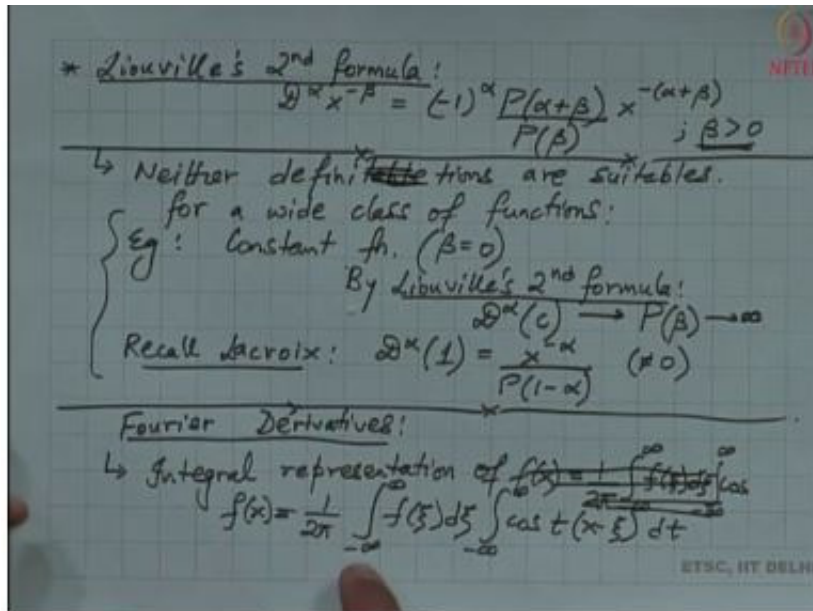 NPTEL
* Liouville's 2nd formula:
D^α x^{-β} = (-1)^α Γ(α+β)/Γ(β) x^{-(α+β)} ; β>0
↳ Neither definitions are suitables.
for a wide class of functions:
Eg: Constant fn. (β=0)
By Liouville's 2nd formula:
D^α(c) → Γ(β) → ∞
Recall Lacroix: D^α(1) = x^{-α}/Γ(1-α) (≠0)
Fourier Derivatives:
↳ Integral representation of
f(x) = 1/2π ∫_{-∞}^{∞} f(ξ)dξ ∫_{-∞}^{∞} cos t(x-ξ) dt
ETSC, IIT DELHI